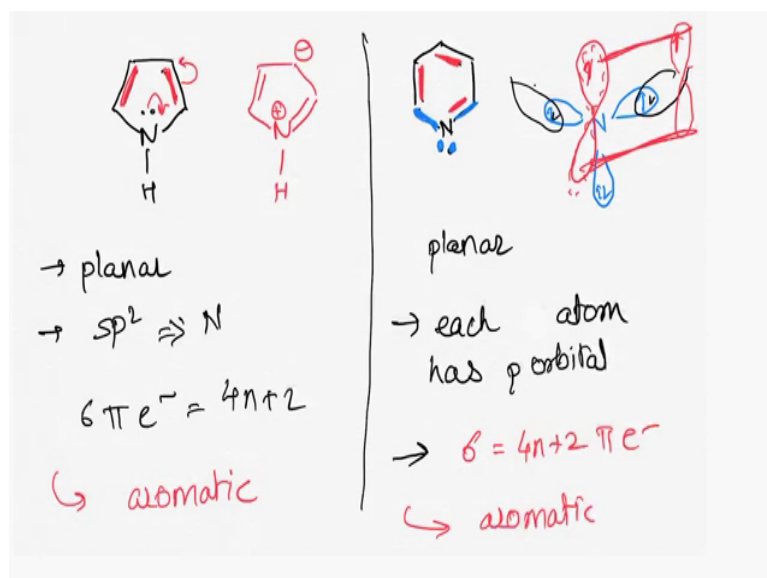 N
H
⊖
⊕
N
H
→ planar
→ sp² ⇒ N
6 π e⁻ = 4n+2
↳ aromatic
N
N
planar
→ each atom
has p orbital
→ 6 = 4n+2 π e⁻
↳ aromatic